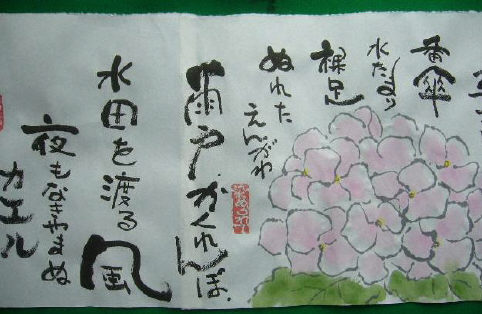 番傘
水たまり
裸足
ぬれた
えんがわ
雨戸.かくれんぼ.
水田を渡る
風
夜もなきやまぬ
カエル